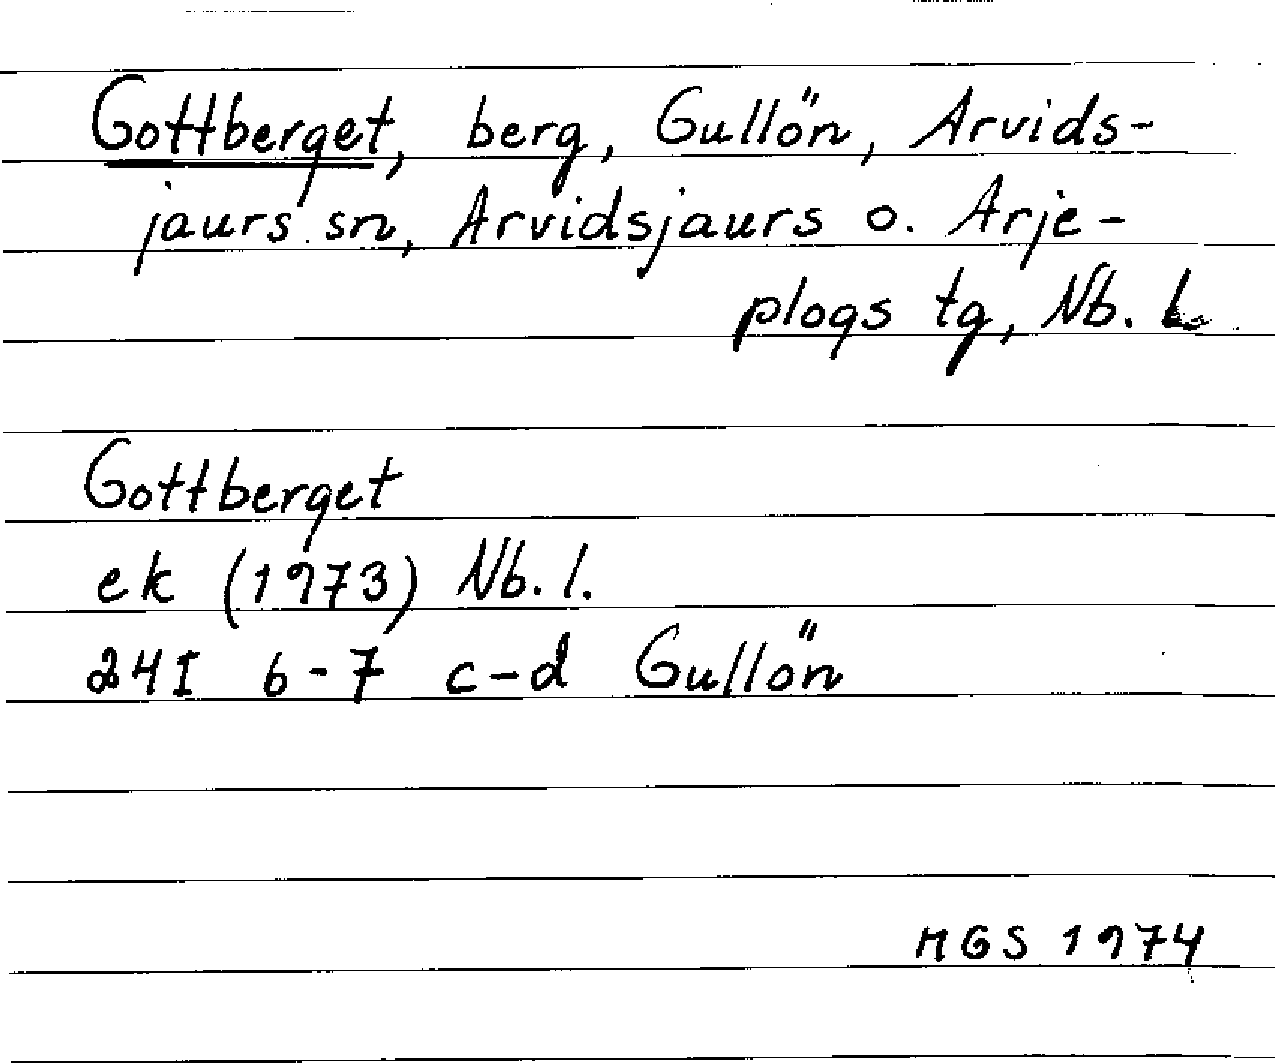 Gottberget, berg, Gullön, Arvids-
jaurs sn, Arvidsjaurs o. Arje-
plogs tg, Nb. L
Gottberget
ek (1973) Nb. l.
24I 6-7 c-d Gullön
MGS 1974